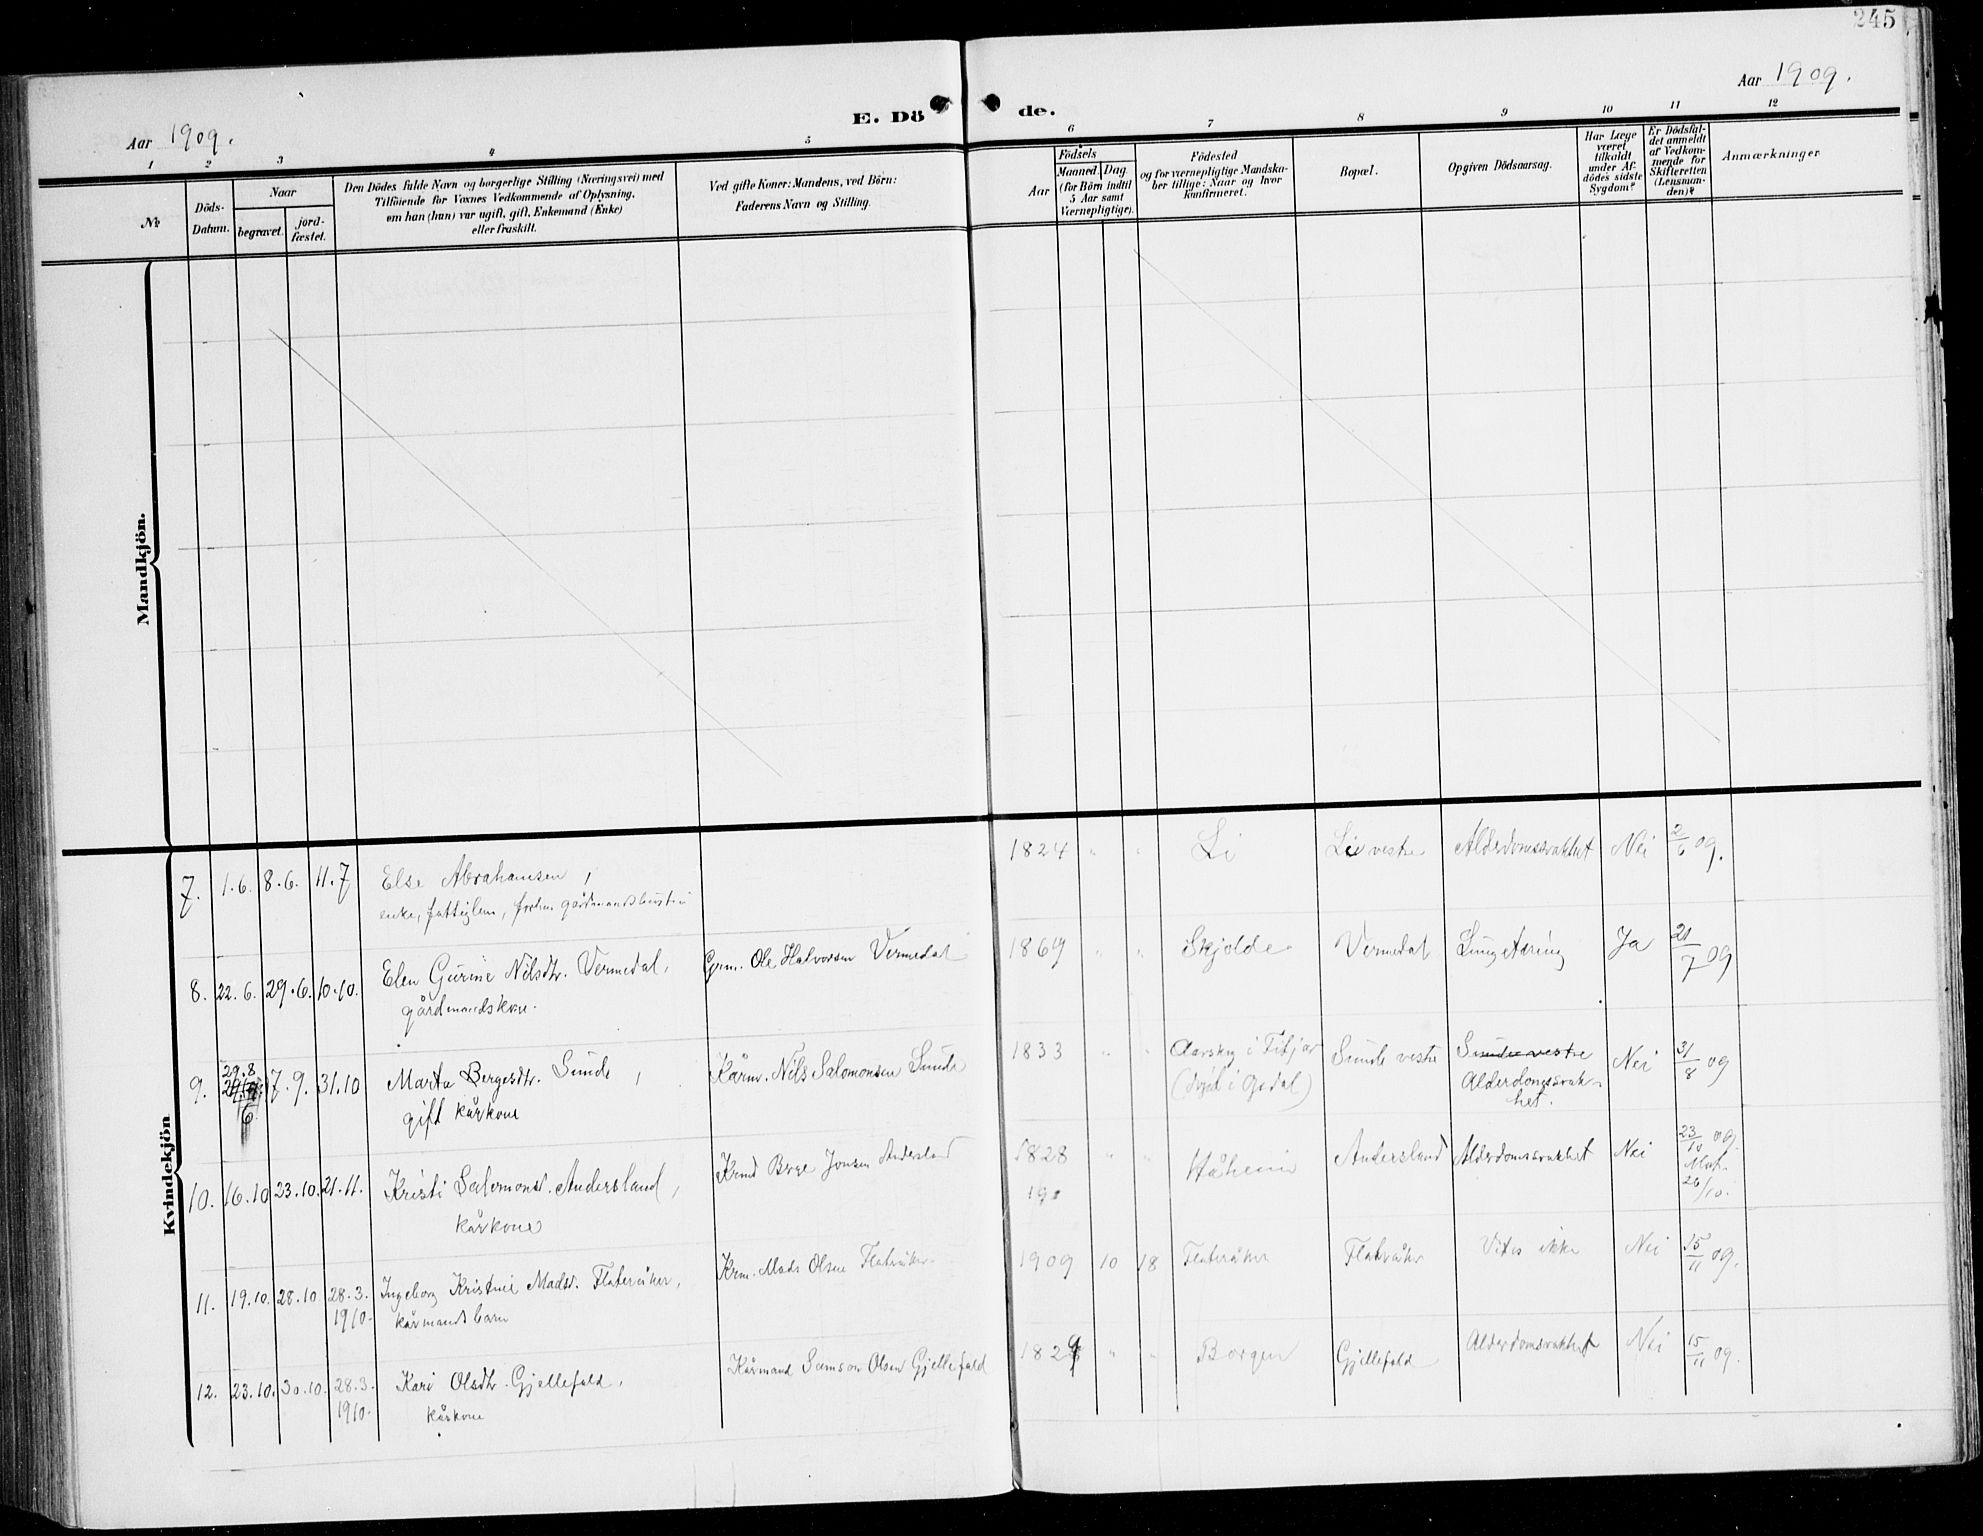 245
Aar 1909.
E. Dö de.
Aar 1909.
1 2 3 4 5 6 7 8 9 10 11 12
№
Döds-
Datum.
Naar
begravet.
jord-
fæstet.
Den Dödes fulde Navn og borgerlige Stilling (Næringsvei) med
Tilföiende for Voxnes Vedkommende af Oplysning,
om han (hun) var ugift, gift, Enkemand (Enke)
eller fraskilt.
Ved gifte Koner: Mandens, ved Börn:
Faderens Navn og Stilling.
Födsels
Aar
Maaned.
Dag
(for Börn indtil
5 Aar samt
Værnepligtige).
Födested
og for værnepligtige Mandska-
ber tillige: Naar og hvor
konfirmeret.
Bopæl.
Opgiven Dödsaarsag.
Har Læge
været
tilkaldt
under Af-
dödes sidste
Sygdom?
Er Dödsfal-
det anmeldt
af Vedkom-
mende for
Skifteretten
(Lensman-
den)?
Anmærkninger
Mandkjön.
Kvindekjön
7. 1.6. 8.6. 11.7 Else Abrahamsen, 1824 " " Li Lie vestre Alderdomssvakhet Nei 2/6 09.
enke, fattiglem, gårdmandshustru
8. 22.6. 29.6. 10.10. Elen Gurine Nilsdtr. Vermedal, Grm. Ole Halvorsen Vermedal 1869 " " Skjolde Vermedal Lungetæring Ja 21/7 09
gårdmandskone.
9. 29.8 7.9. 31.10 Marta Bergesdtr. Sunde, Kårm. Nils Salomonsen Sunde 1833 " " i Fitjar Sunde vestre Sunde vestre Nei 31/8 09
gift kårkone
Alderdomssvak-
het.
10. 16.10 23.10. 21.11. Kristi Salomonsd. Andersland, Krmd Berge Jonsen Andersland 1828 " " Håheim Andersland Alderdomssvakhet Nei 23/10 09.
kårkone
19
26/10.
11. 19.10. 28.10 28.3. Ingeborg Kristine Madsd. Flateråker, Krm. Mads Olsen Flateråker 1909 10 18 Flateråker Flateråker Vites ikke Nei 15/11 09.
1910. kårmandsbarn
12. 23.10. 30.10. 28.3. Kari Olsdtr. Gjellefald, Kårmand Samson Olsen Gjellefald 1829 " " Borgen Gjellefald Alderdomsvakhet Nei 15/11 09.
1910. kårkone